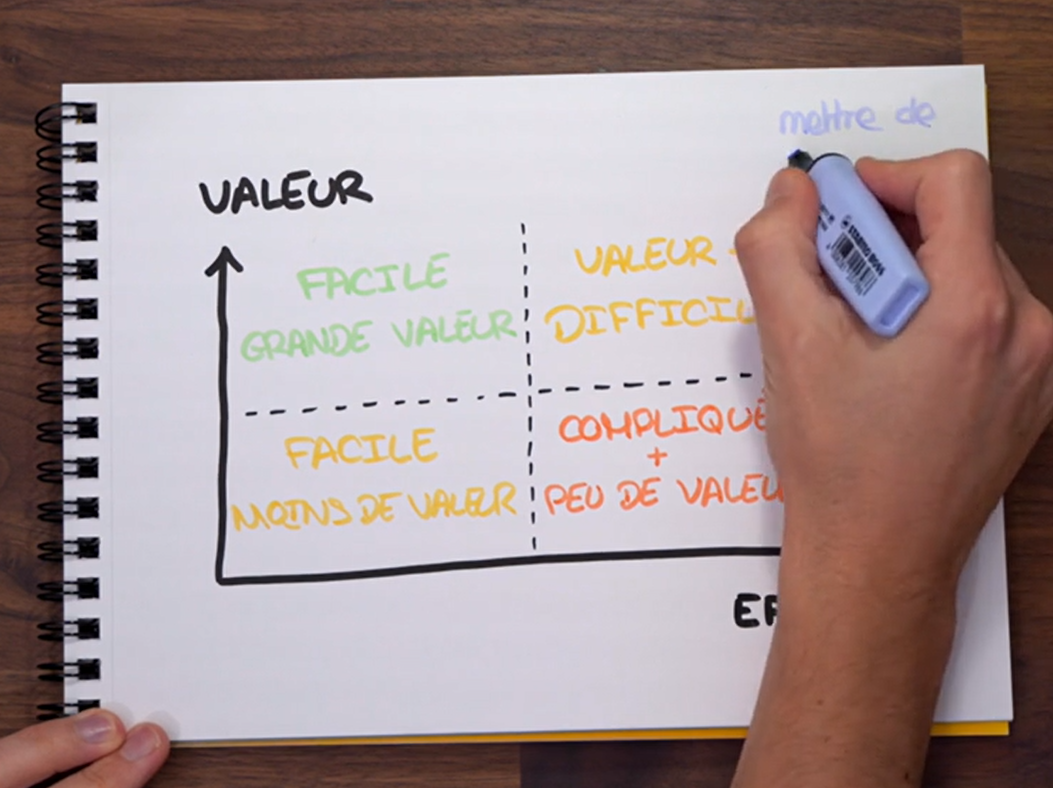 mettre de
VALEUR
FACILE
GRANDE VALEUR
VALEUR
DIFFICIL
FACILE
MOINS DE VALEUR
COMPLIQUÉ
+
PEU DE VALEU
STABILO BOSS